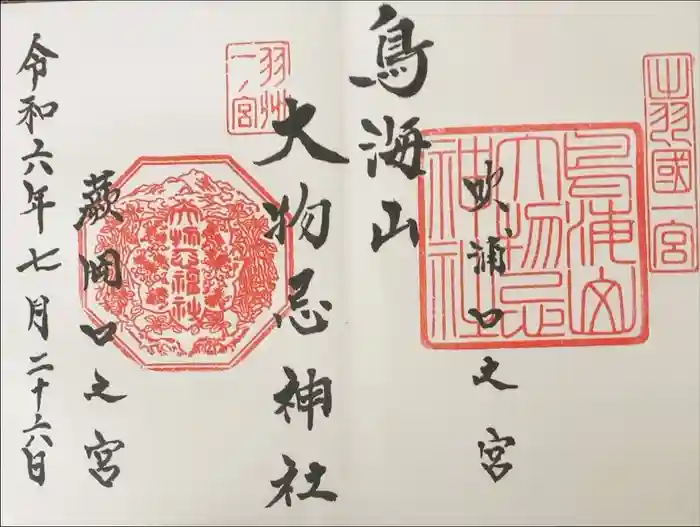 出羽國一宮
鳥海山
大物忌
神社
吹浦口之宮
鳥海山
大物忌神社
羽州
一ノ宮
大物忌神社
蕨岡口之宮
令和六年七月二十六日